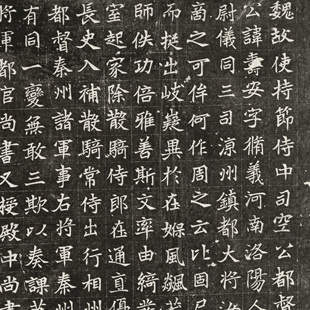 魏故使持節侍中司空公都督
公諱壽安字脩義河南洛陽人
尉儀同三司涼州鎮都大將
高之可侔何作周之云比固
而挺出岐嶷異於在風飆
師佚功倍雅善斯文率由綺
室起家除散騎侍郎在通直優
長史入補散騎常侍出行相州
都督秦州諸軍事右將軍秦州
有同一變無敢三欺以奏課
將軍都官尚書又授殿中尚書